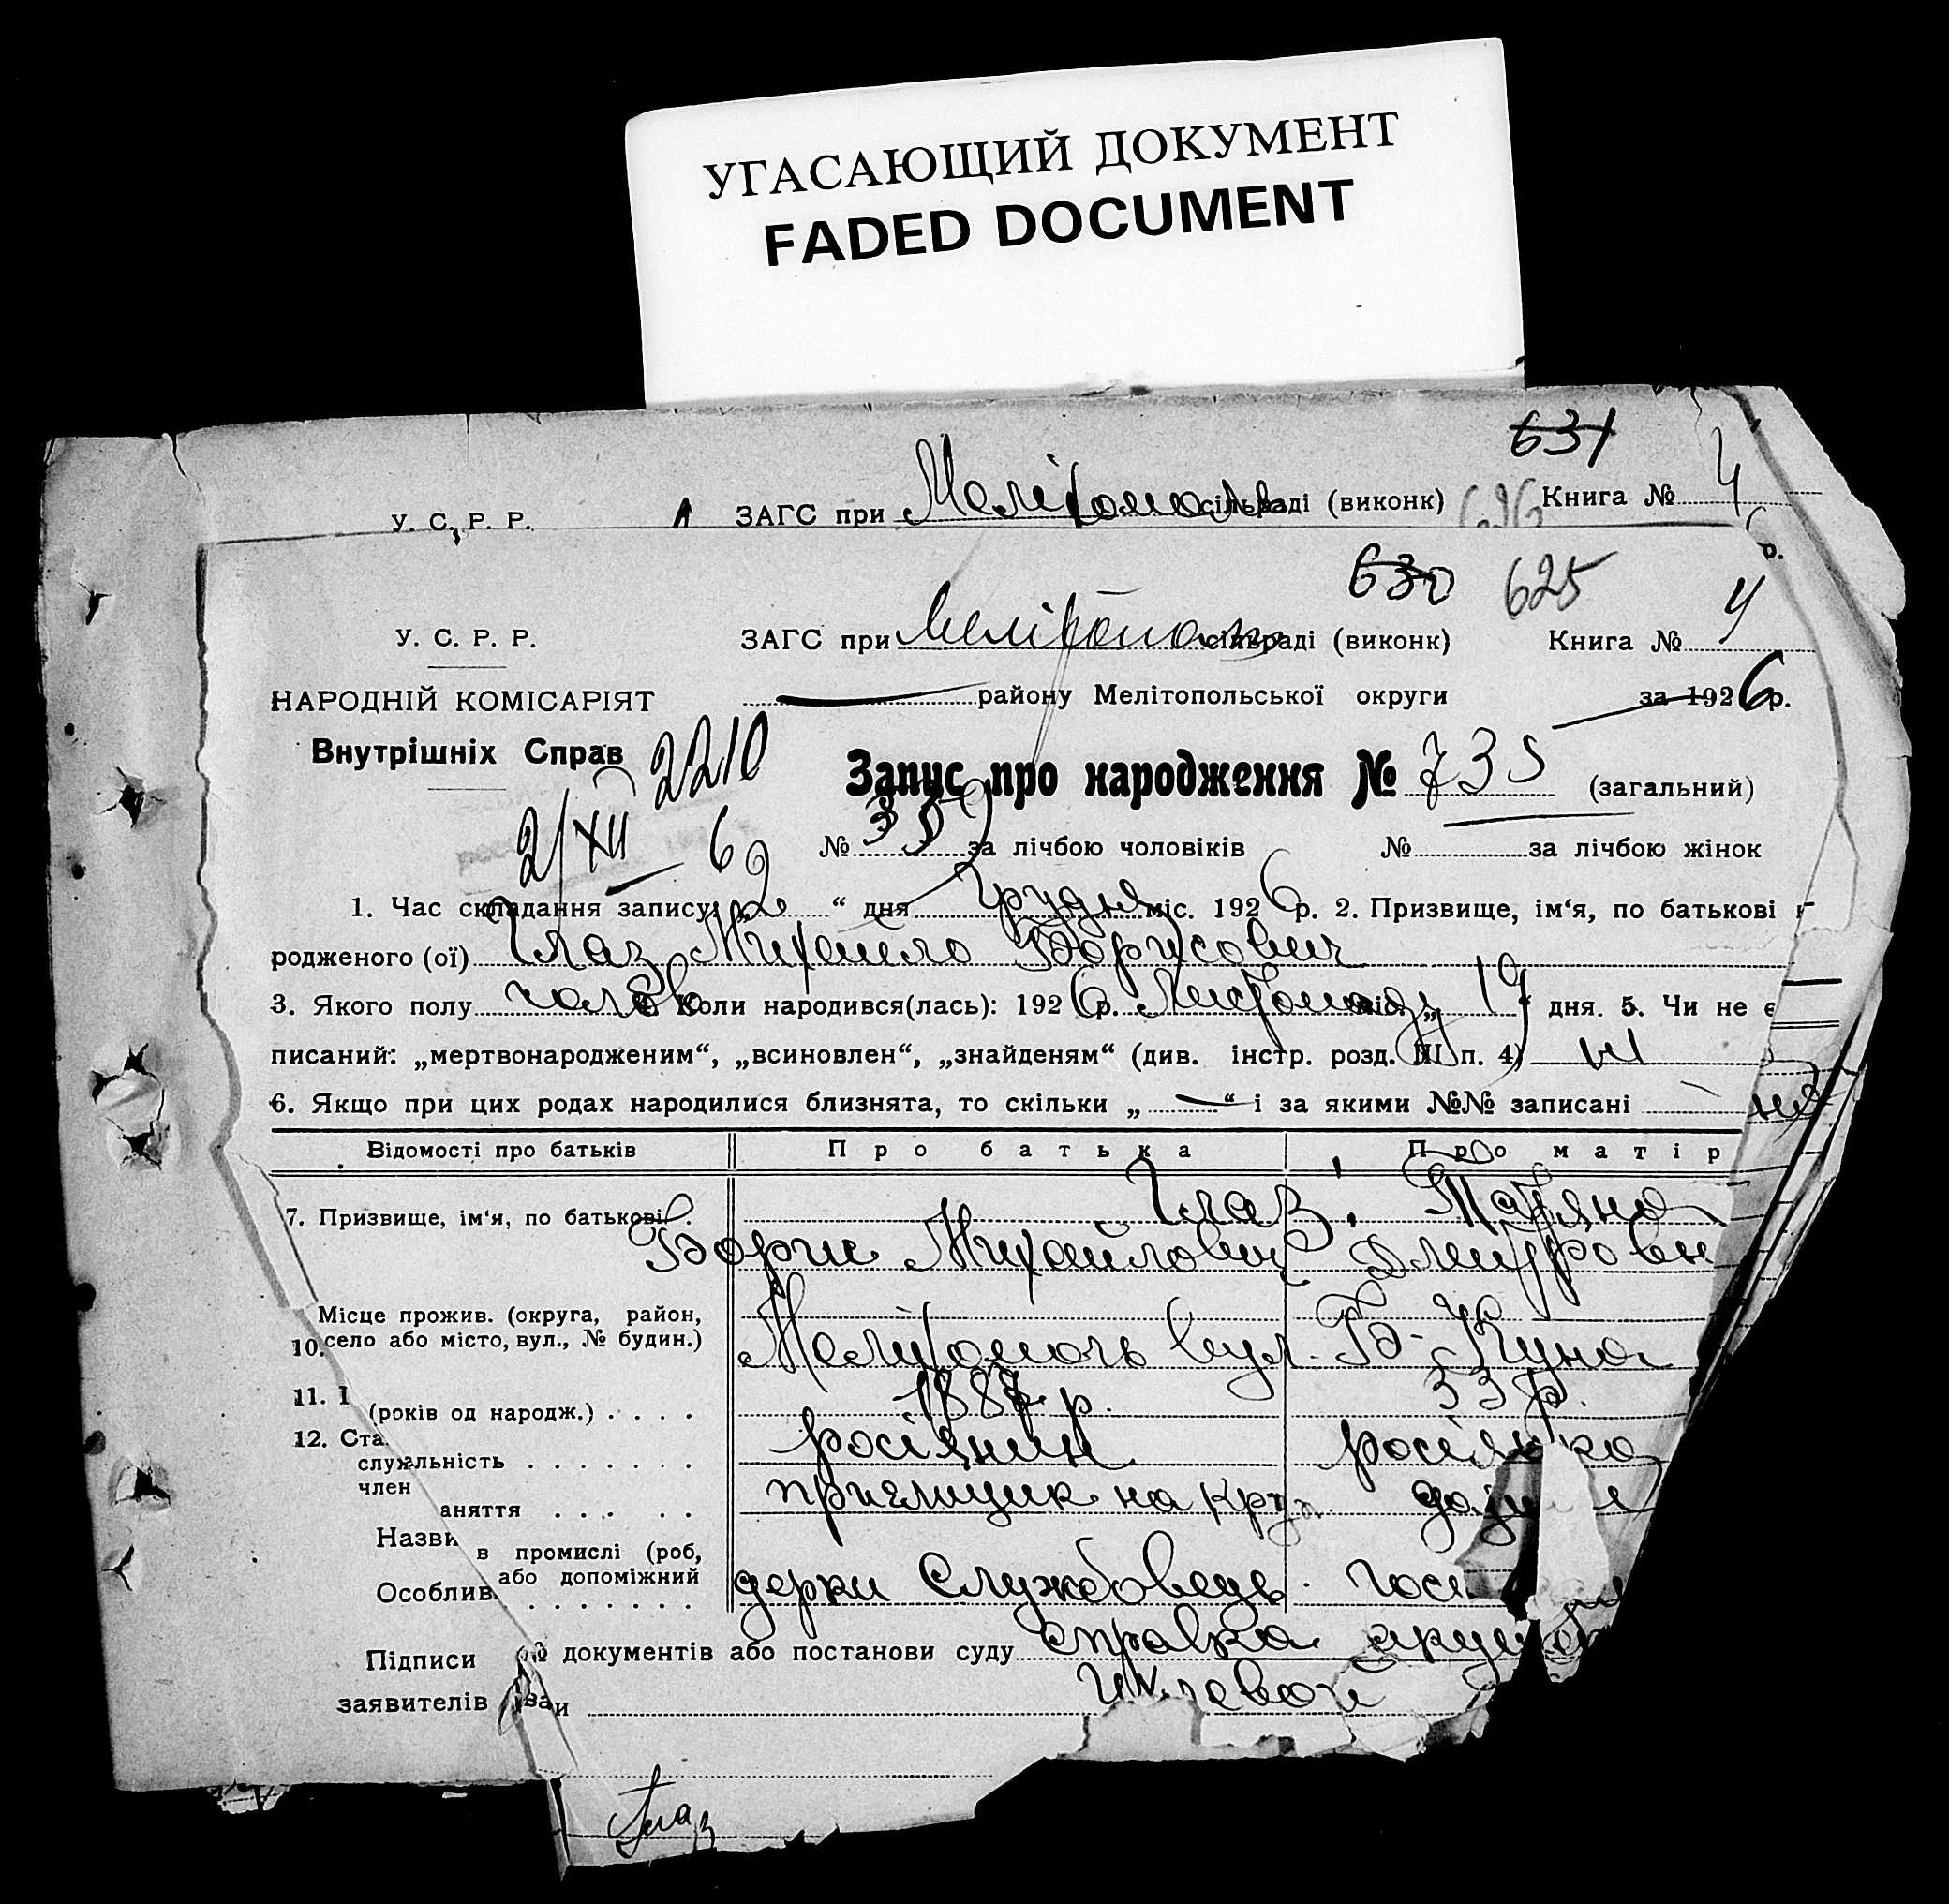 УГАСАЮЩИЙ ДОКУМЕНТ
FADED DOCUMENT
631
У. С. Р. Р. ЗАГС при Мелітополь сільраді (виконк) 626 Книга № 4
р.
630 625
У. С. Р. Р. ЗАГС при Мелітополь сільраді (виконк) Книга № 4
НАРОДНІЙ КОМІСАРІЯТ району Мелітопольської округи за 1926 р.
Внутрішніх Справ 2210 Запис про народження № 735 (загальний)
2/XII — 6 № 359 за лічбою чоловіків № за лічбою жінок
1. Час складання запису: „2“ дня Грудня міс. 1926 р. 2. Призвище, ім'я, по батькові
родженого (ої) Глаз Михайло Борисович
3. Якого полу чолов 4. Коли народився(лась): 1926 р. Листопаду міс. „19“ дня. 5. Чи не є
писаний: „мертвонародженим“, „всиновлен“, „знайденям“ (див. інстр. розд. III п. 4) ні
6. Якщо при цих родах народилися близнята, то скільки „—“ і за якими №№ записані
Відомості про батьків Про батька Про матір
7. Призвище, ім'я, по батькові Глаз, Татяна
Борис Михайлович Дмитровн
Місце прожив. (округа, район,
10. село або місто, вул., № будин.) Мелітополь вул. Б-Куна
11. (років од народж.) 1887 р. 33 р.
12. Ста росіянин росіянка
служльність
член
аняття на
Назви в промислі (роб,
або допоміжний
Особлив. Службовець.
Підписи № документів або постанови суду справка
заявителів ваи
Глаз